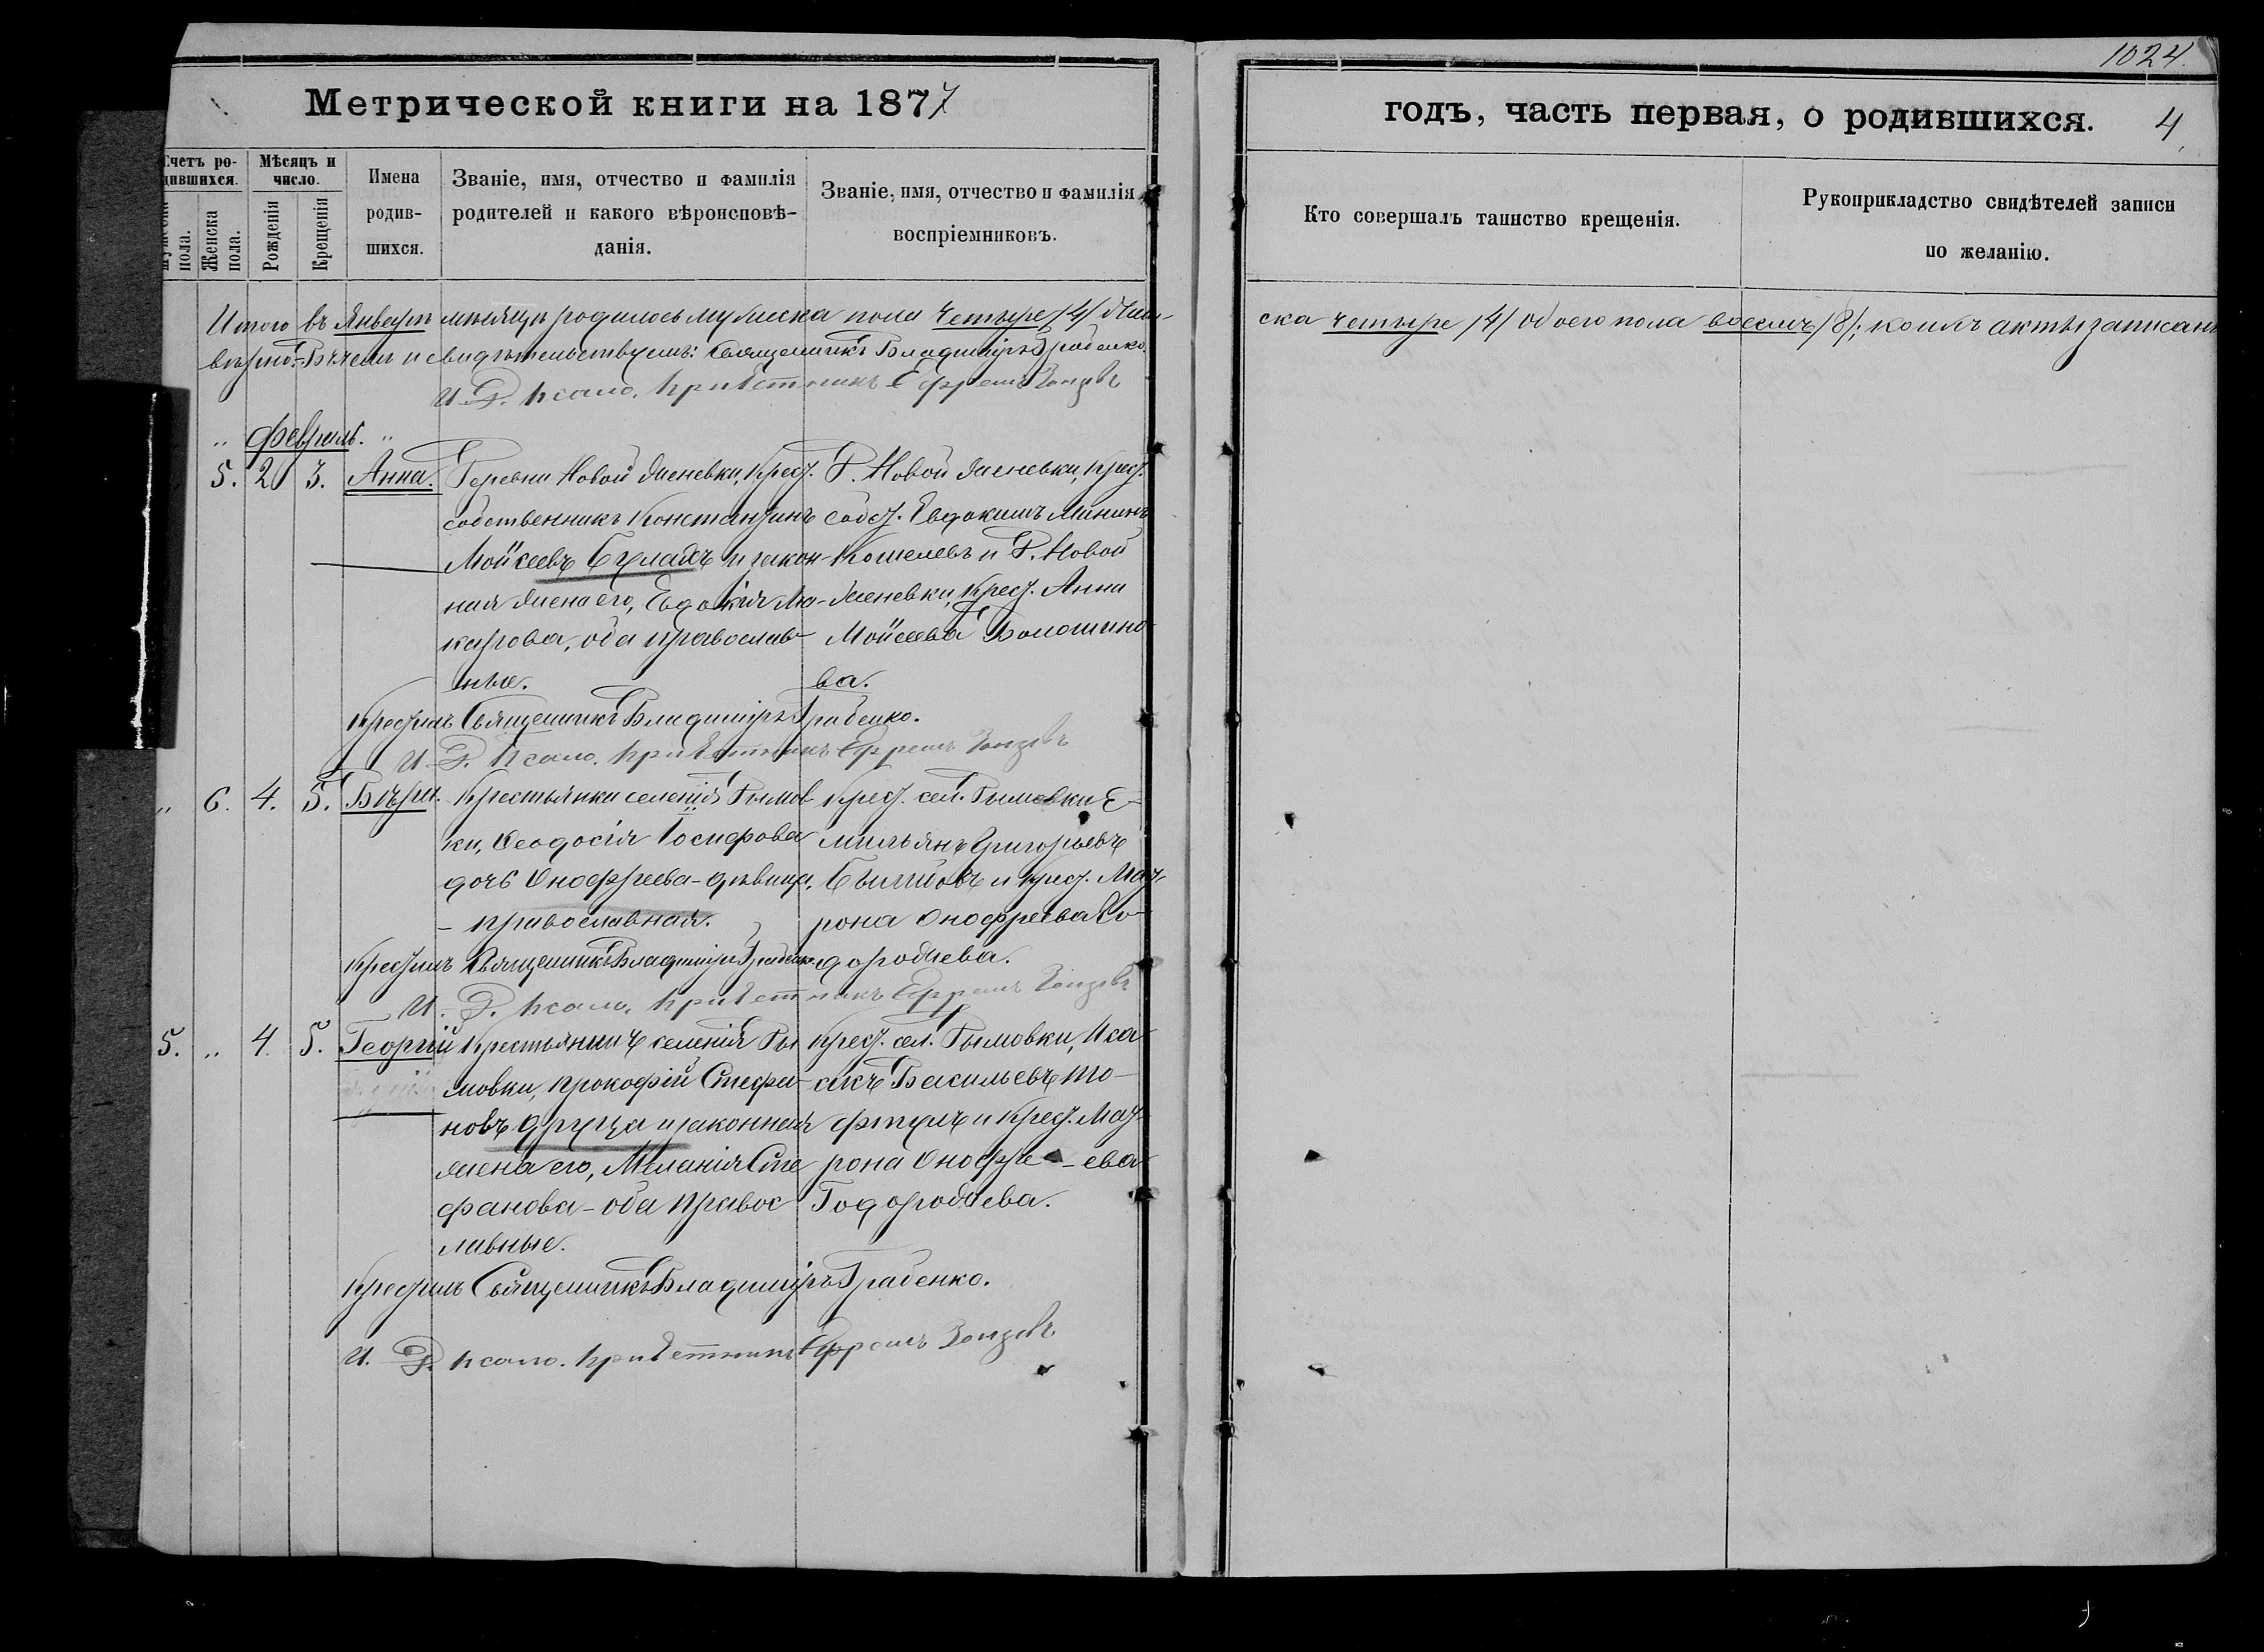 1024.
Метрической книги на 1877
годъ, часть первая, о родившихся. 4
Счетъ родившихся.
Мужеска пола.
Женска пола.
Мѣсяцъ и число.
Рожденія
Крещенія
Имена родив-
шихся.
Званіе, имя, отчество и фамилія
родителей и какого вѣроисповѣ-
данія.
Званіе, имя, отчество и фамилія
воспріемниковъ.
Кто совершалъ таинство крещенія.
Рукоприкладство свидѣтелей записи
по желанію.
Итого въ Январѣ мѣсяцѣ родилось мужеска пола четыре /4/ жен-
ска четыре /4/ обоего пола восемь /8/; коихъ акты записаны
вѣрно. Въ чемъ и свидѣтельствуемъ: Священникъ Владиміръ Грабенко.
И. Д. псало. причетникъ Ефремъ
„ Февраль. „
5. 2 3. Анна.
Деревни Новой Женевки, крест.
собственникъ Константинъ
Мойсеевъ Булахъ и закон-
ная жена его, Евдокія Ма-
карова, оба православ-
ные.
Д. Новой Женевки, крест.
собст. Евдокимъ Мининъ
Кошелевъ и Д. Новой
Женевки, крест. Анна
Мойсеева Волошино-
ва.
Крестилъ Священникъ Владиміръ Грабенко.
И. Д. псало. причетникъ Ефремъ
„ 6. 4. 5. Вѣра.
Крестьянки селенія Рымов-
ки, Ѳеодосія Іосифова
дочь Онофреева - дѣвица,
- православная.
Крест. сел. Рымовки Е-
мильянъ Григорьевъ
и крест. Мат-
рона Онофреева Го-
дороджева.
Крестилъ Священникъ Владиміръ Грабенко.
И. Д. псало. причетникъ Ефремъ
5. „ 4. 5. Георгій
Крестьянинъ селенія Ры-
мовки, Прокофій Стефа-
новъ Друца и законная
жена его, Меланія Сте-
фанова - оба правос-
лавные.
Крест. сел. Рымовки, Иса-
акъ Васильевъ
и крест. Мат-
рона Онофре - ева
Годороджева.
Крестилъ Священникъ Владиміръ Грабенко.
И. Д. псало. причетникъ Ефремъ